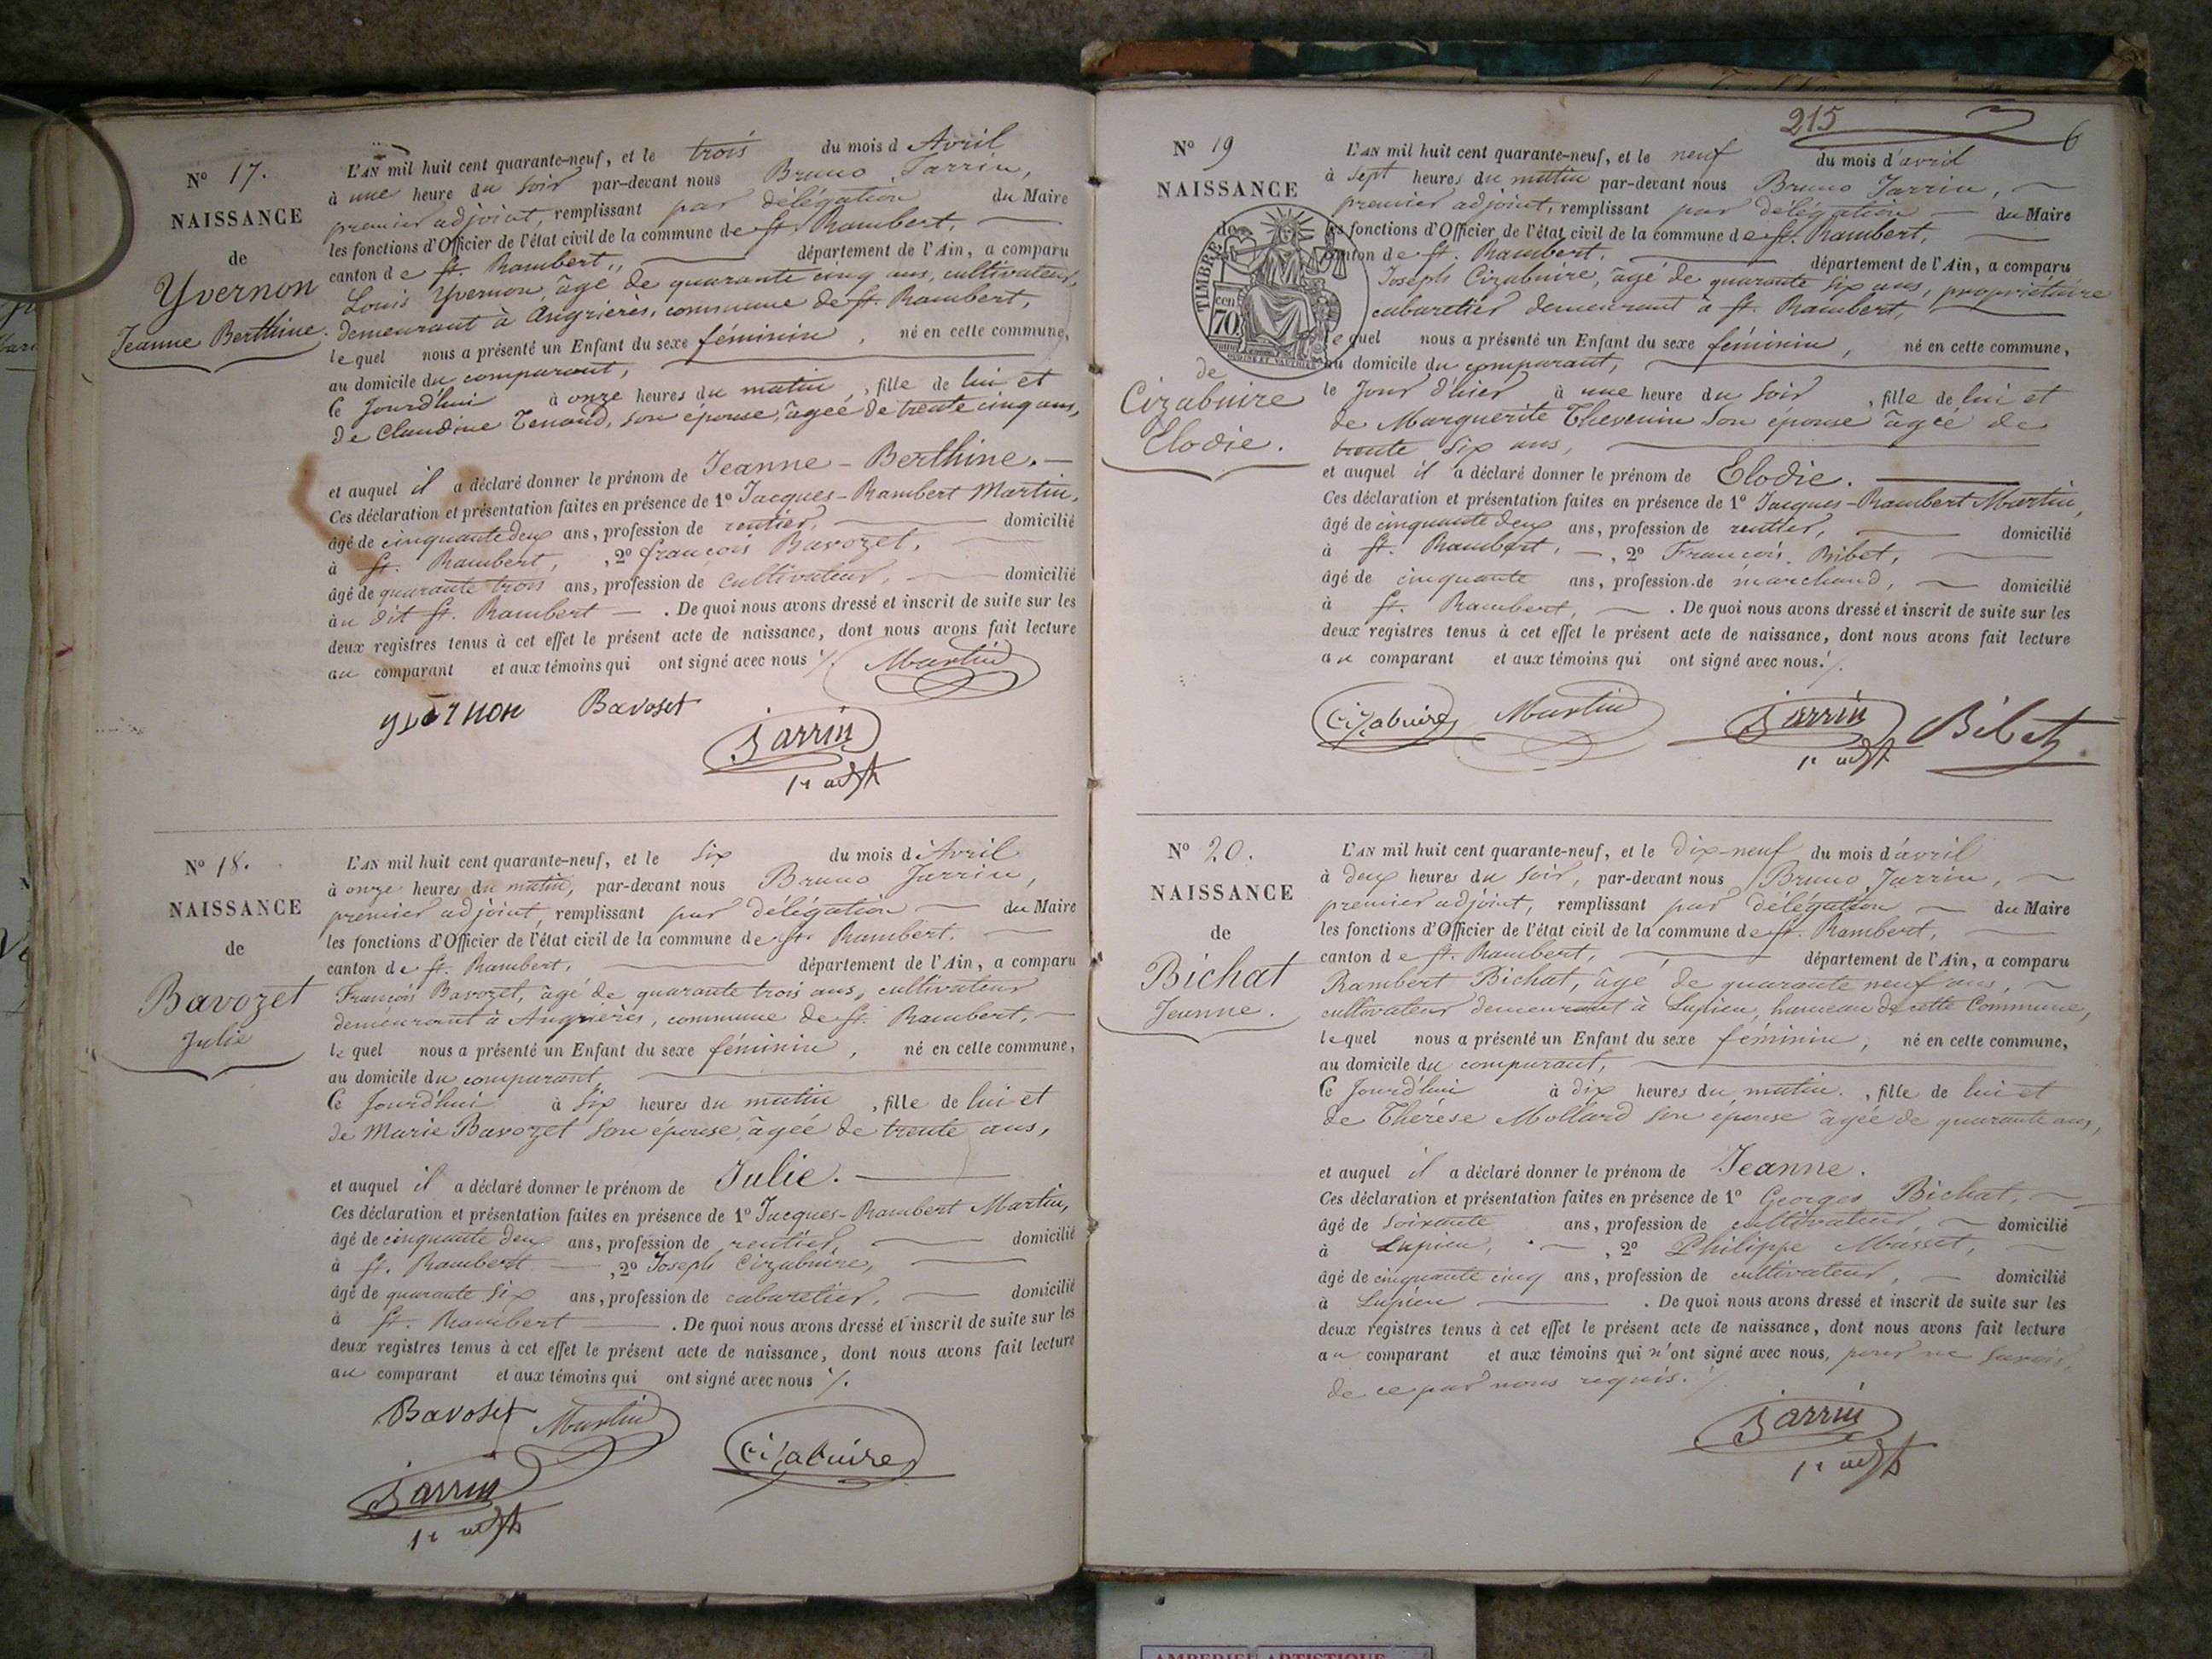 N° 17.
NAISSANCE
de
Yvernon
Jeanne Berthine.
L'AN mil huit cent quarante-neuf, et le trois du mois d Avril
à une heure du soir par-devant nous Bruno Jarrin,
premier adjoint, remplissant par délégation du Maire
les fonctions d'Officier de l'état civil de la commune de St. Rambert,
canton de St. Rambert, département de l'Ain, a comparu
Louis Yvernon, âgé de quarante cinq ans, cultivateur,
demeurant à Angrières, commune de St. Rambert,
lequel nous a présenté un Enfant du sexe féminin, né en cette commune,
au domicile du comparant,
Ce Jourd'hui à onze heures du matin, fille de lui et
de Claudine Tenand, son épouse, âgée de trente cinq ans,
et auquel il a déclaré donner le prénom de Jeanne-Berthine.
Ces déclaration et présentation faites en présence de 1° Jacques-Rambert Martin,
âgé de cinquante deux ans, profession de rentier, domicilié
à St. Rambert, , 2° françois Bavozet,
âgé de quarante trois ans, profession de cultivateur, domicilié
au dit St. Rambert . De quoi nous avons dressé et inscrit de suite sur les
deux registres tenus à cet effet le présent acte de naissance, dont nous avons fait lecture
au comparant et aux témoins qui ont signé avec nous ./. Martin
yvernon Bavoset
Jarrin
1er adjt
N° 18.
NAISSANCE
de
Bavozet
Julie
L'AN mil huit cent quarante-neuf, et le six du mois d'Avril
à onze heures du matin, par-devant nous Bruno Jarrin,
premier adjoint, remplissant par délégation du Maire
les fonctions d'Officier de l'état civil de la commune de St. Rambert,
canton de St. Rambert, département de l'Ain, a comparu
François Bavozet, âgé de quarante trois ans, cultivateur
demeurant à Angrières, commune de St. Rambert,
lequel nous a présenté un Enfant du sexe féminin, né en cette commune,
au domicile du comparant,
Ce Jourd'hui à six heures du matin, fille de lui et
de Marie Bavozet son épouse, âgée de trente ans,
et auquel il a déclaré donner le prénom de Julie.
Ces déclaration et présentation faites en présence de 1° Jacques-Rambert Martin,
âgé de cinquante deux ans, profession de rentier, domicilié
à St. Rambert , 2° Joseph Cizabuire,
âgé de quarante six ans, profession de cabaretier, domicilié
à St. Rambert . De quoi nous avons dressé et inscrit de suite sur les
deux registres tenus à cet effet le présent acte de naissance, dont nous avons fait lecture
au comparant et aux témoins qui ont signé avec nous ./.
Bavoset Martin
Cizabuire
Jarrin
1er adjt
215
6
N° 19
NAISSANCE
de
TIMBRE
cen
70
de
Cizabuire
Elodie.
L'AN mil huit cent quarante-neuf, et le neuf du mois d'avril
à sept heures du matin par-devant nous Bruno Jarrin,
premier adjoint, remplissant par délégation du Maire
les fonctions d'Officier de l'état civil de la commune de St. Rambert,
canton de St. Rambert, département de l'Ain, a comparu
Joseph Cizabuire, âgé de quarante six ans, propriétaire
cabaretier demeurant à St. Rambert,
lequel nous a présenté un Enfant du sexe féminin, né en cette commune,
au domicile du comparant,
le Jour d'hier à une heure du soir, fille de lui et
de Marguerite Thevenin son épouse âgée de
trente six ans,
et auquel il a déclaré donner le prénom de Elodie.
Ces déclaration et présentation faites en présence de 1° Jacques-Rambert Martin,
âgé de cinquante deux ans, profession de rentier, domicilié
à St. Rambert, , 2° François Bibet,
âgé de cinquante ans, profession de marchand, domicilié
à St. Rambert, . De quoi nous avons dressé et inscrit de suite sur les
deux registres tenus à cet effet le présent acte de naissance, dont nous avons fait lecture
au comparant et aux témoins qui ont signé avec nous./.
Cizabuire Martin Jarrin Bibet
1er adjt
N° 20.
NAISSANCE
de
Bichat
Jeanne.
L'AN mil huit cent quarante-neuf, et le dix-neuf du mois d'avril
à deux heures du soir, par-devant nous Bruno Jarrin,
premier adjoint, remplissant par délégation du Maire
les fonctions d'Officier de l'état civil de la commune de St. Rambert,
canton de St. Rambert, département de l'Ain, a comparu
Rambert Bichat, âgé de quarante neuf ans,
cultivateur demeurant à Lupieu, hameau de cette Commune,
lequel nous a présenté un Enfant du sexe féminin, né en cette commune,
au domicile du comparant,
Ce Jourd'hui à dix heures du matin, fille de lui et
de Thérèse Mollard son épouse âgée de quarante ans,
et auquel il a déclaré donner le prénom de Jeanne.
Ces déclaration et présentation faites en présence de 1° Georges Bichat,
âgé de soixante ans, profession de cultivateur, domicilié
à Lupieu, , 2° Philippe Musset,
âgé de cinquante cinq ans, profession de cultivateur, domicilié
à Lupieu . De quoi nous avons dressé et inscrit de suite sur les
deux registres tenus à cet effet le présent acte de naissance, dont nous avons fait lecture
au comparant et aux témoins qui n'ont signé avec nous, pour ne savoir,
de ce par nous requis./.
Jarrin
1er adjt
AMBERIEU ARTISTIQUE